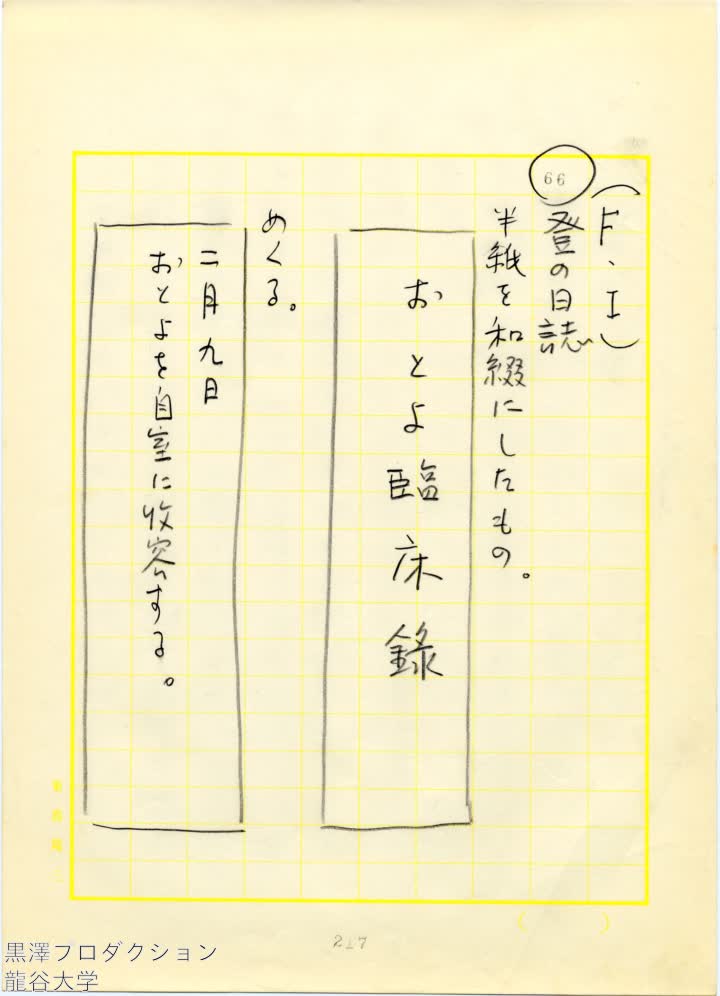 (F・I)
66
登の日誌
半紙を和綴にしたもの。
おとよ臨床録
めくる。
二月九日
おとよを自室に收容する。
217
黒澤プロダクション
龍谷大学